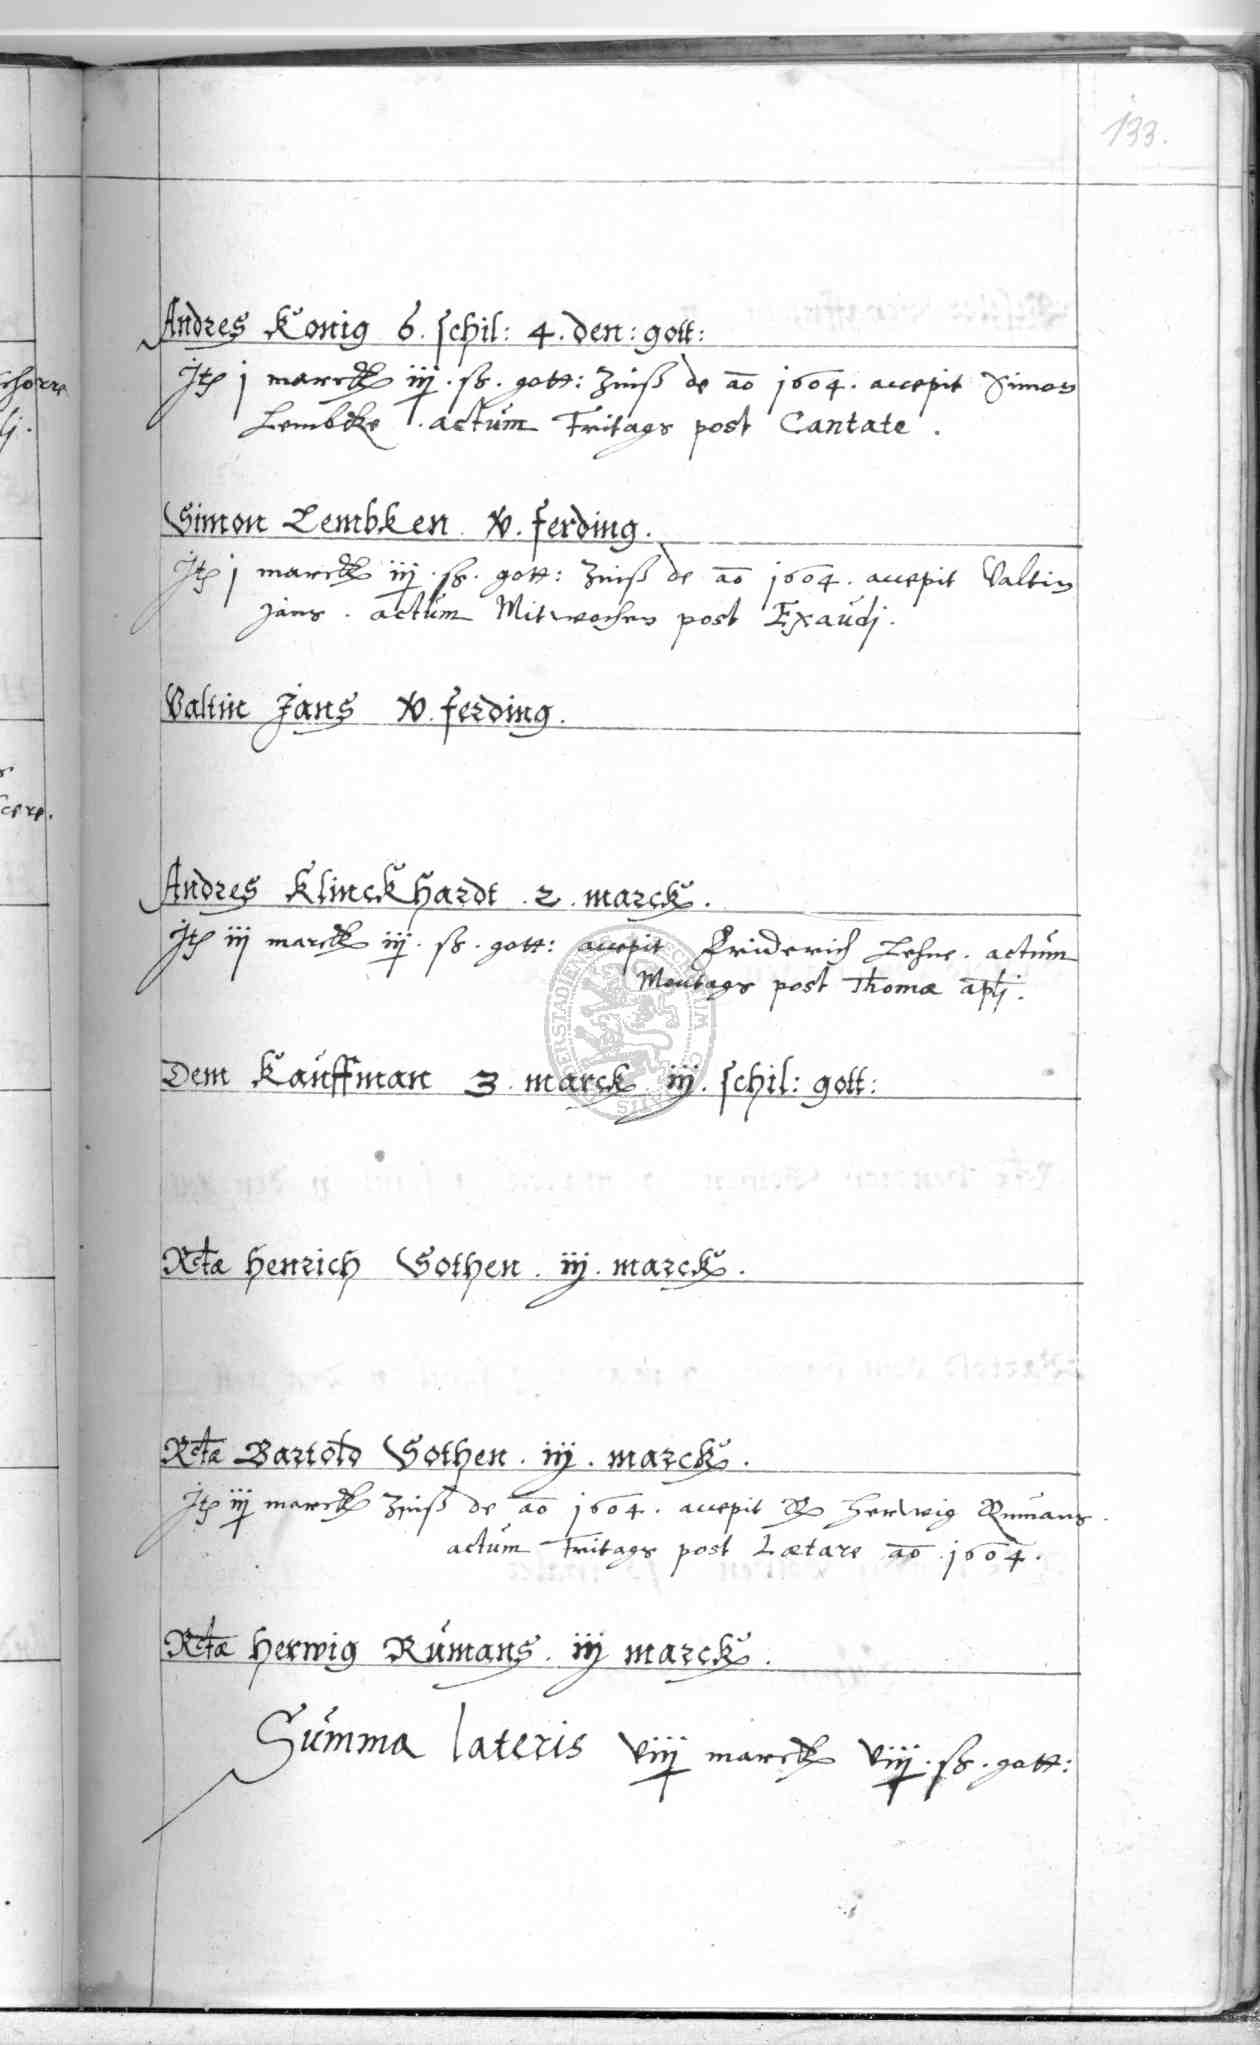 133.
Andres Konig 6. schil: 4. den: gott:
It j marck iij. ß. gott: Zinß de ao 1604. accepit Simon
Lembcke. actum Fritags post Cantate.
Simon Lembken V. ferding.
It j marck iij. ß. gott: Zinß de ao 1604. accepit Valtin
Jans. actum Mitwochen post Exaudj.
Valtin Jans V. ferding.
Andres Klinckhardt 2. marck.
It iij marck iij. ß. gott: accepit Friderich Lehne. actum
Montags post Thomæ aplj.
Dem Kauffman 3. marck iij. schil: gott:
Rctæ Henrich Gothen. iij. marck.
Rctæ Bartold Gothen. iij. marck.
It iij marck Zinß de ao 1604. accepit Herwig Rumans.
actum Fritags post Lætare ao 1604.
Rctæ Herwig Rumans. iij marck.
Summa lateris viij marck viij. ß. gott: